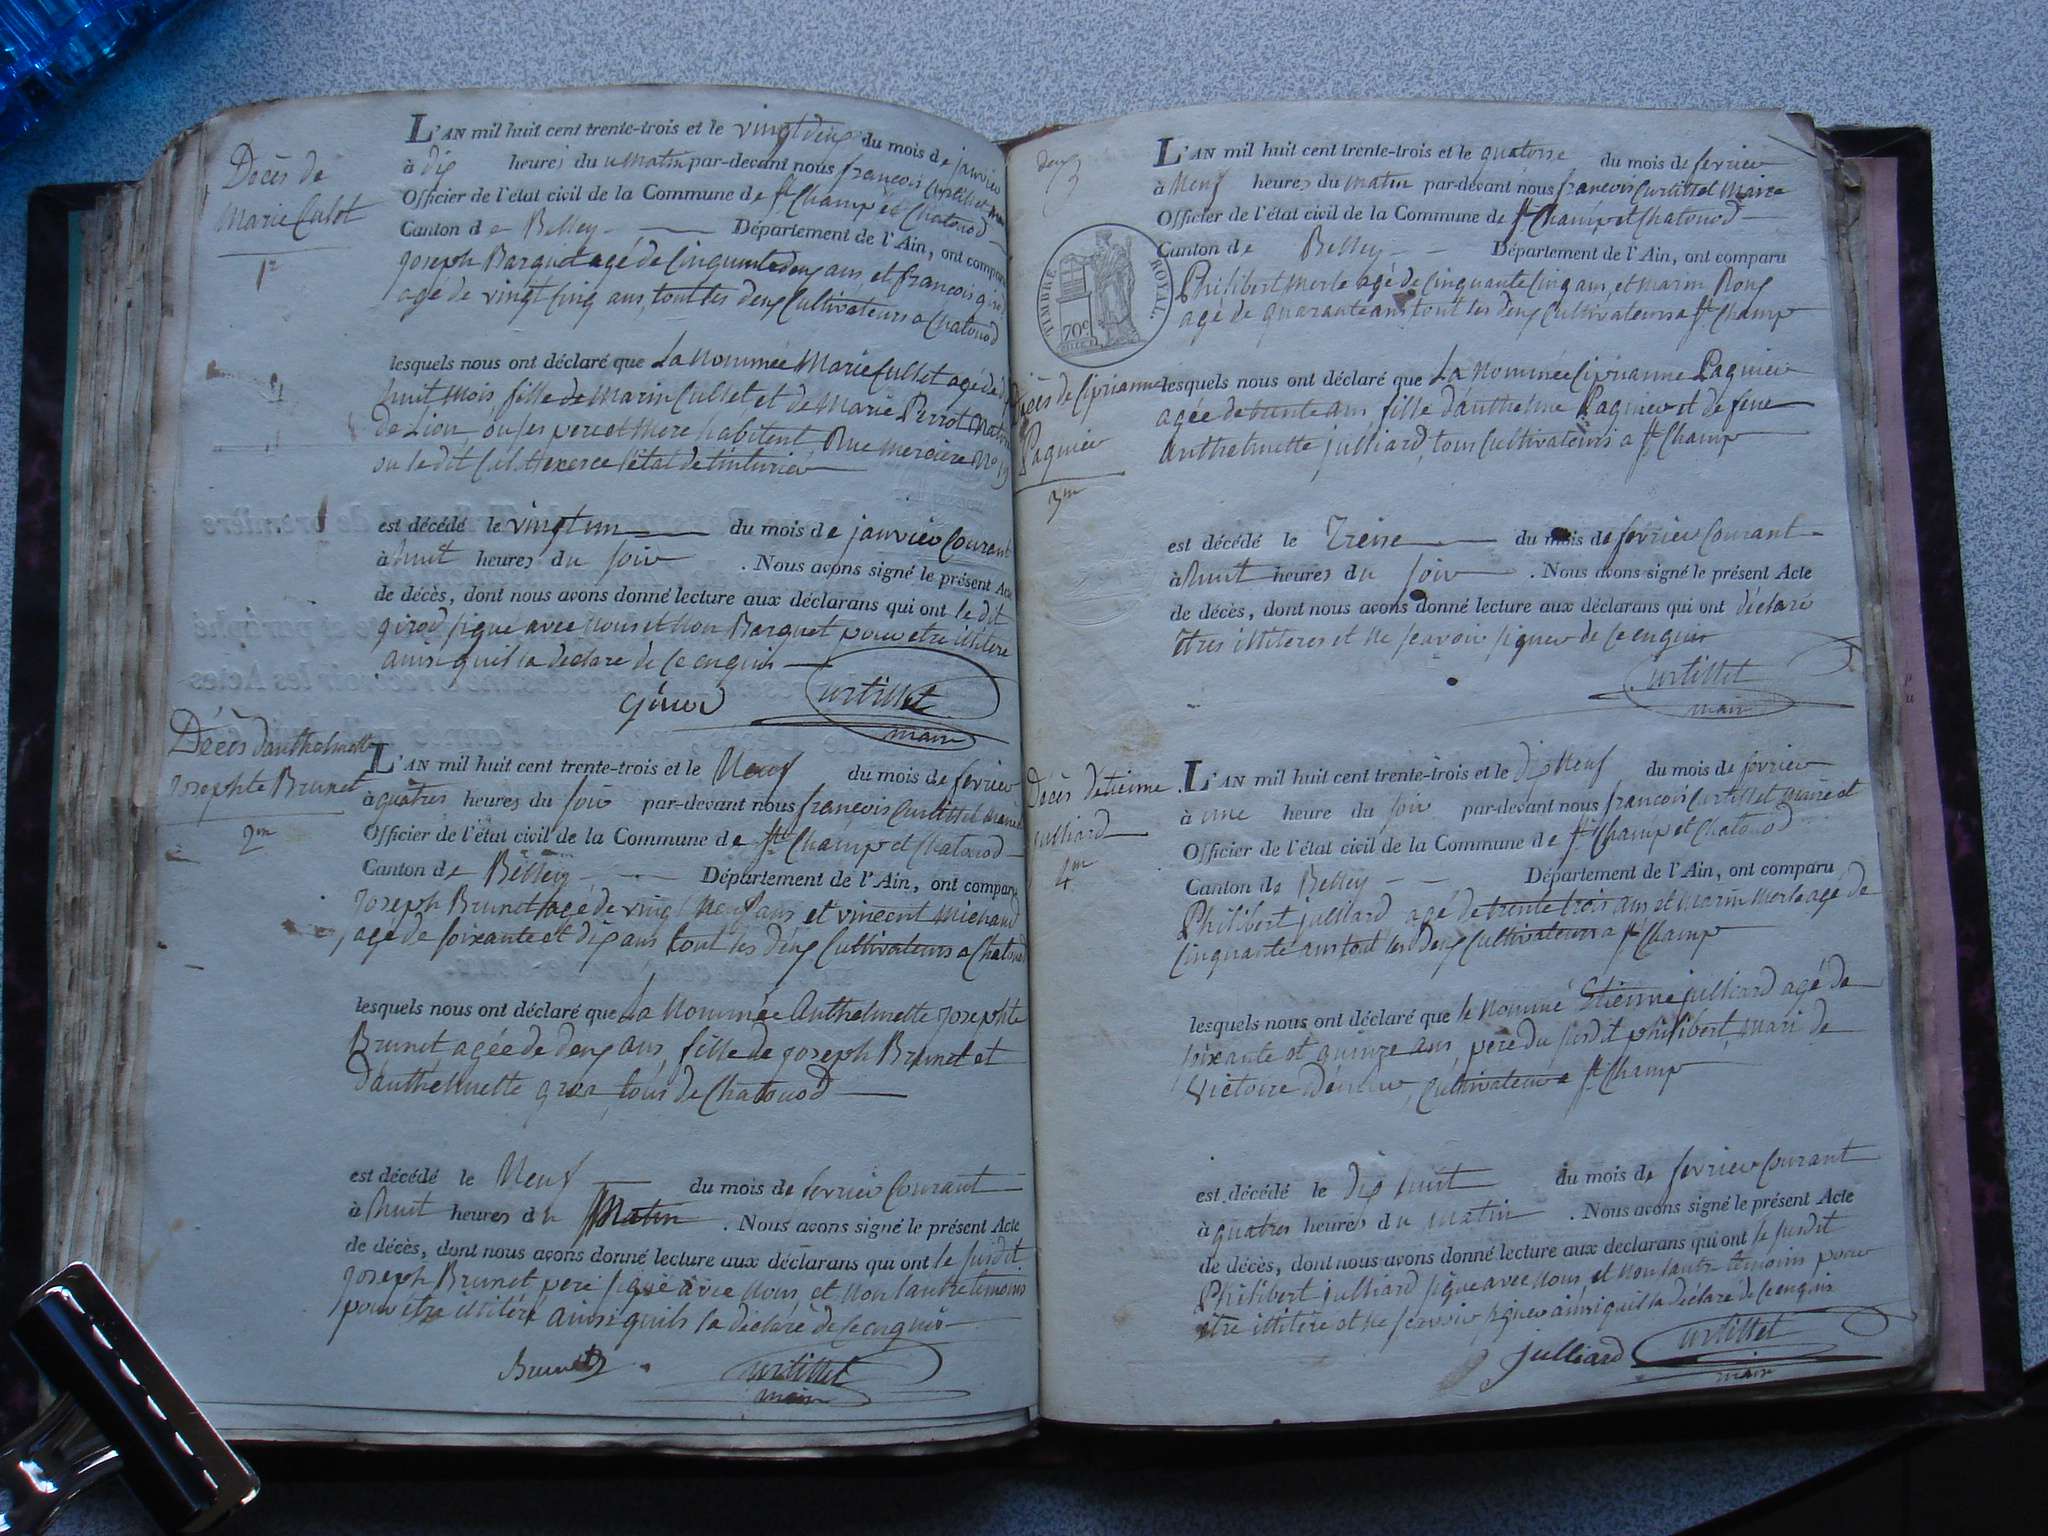 Décès de
Marie Culet
1er
L'AN mil huit cent trente-trois et le vingt deux du mois de janvier
à dix heures du matin par-devant nous françois Curtillet maire
Officier de l'état civil de la Commune de St Champ et Chatonod
Canton de Belley Département de l'Ain, ont comparu
joseph Barquet agé de Cinquante deux ans, et françois girod
agé de vingt cinq ans, tout les deux Cultivateurs a Chatonod
lesquels nous ont déclaré que La nommée Marie Cullet agée de dix
huit mois fille de Marin Cullet et de Marie Perrot Natif
de Lion, ou ses pere et Mere habitent Rue merciere No 19
ou le dit Cullet exerce l'état de tinturier
est décédé le vingt un du mois de janvier Courant
à huit heures du soir . Nous avons signé le présent Acte
de décès, dont nous avons donné lecture aux déclarans qui ont le dit
girod signé avec nous et non Barquet pour etre illitéré
ainsi quil la declare de ce enquis
girod Curtillet
maire
Décès d'anthelmette
josephte Brunet
2me
L'AN mil huit cent trente-trois et le Neuf du mois de fevrier
à quatres heures du soir par-devant nous françois Curtillet maire
Officier de l'état civil de la Commune de St Champ et Chatonod
Canton de Belley Département de l'Ain, ont comparu
joseph Brunet agé de vingt Neuf ans et vincent michaud
agé de soixante et dix ans tout les deux Cultivateurs a Chatonod
lesquels nous ont déclaré que La Nommée Anthelmette josephte
Brunet agée de deux ans, fille de joseph Brunet et
d'anthelmette gros, tous de Chatonod
est décédé le Neuf du mois de fevrier Courant
à huit heures du Matin . Nous avons signé le présent Acte
de décès, dont nous avons donné lecture aux déclarans qui ont le susdit
joseph Brunet pere signé avec nous et non l'autre temoins
pour etre illitéré ainsi quils la déclaré de ce enquis
Brunet Curtillet
maire
deux
3
TIMBRE ROYAL
70c
Décès de Ciprianne
Paguier
3me
L'AN mil huit cent trente-trois et le quatorse du mois de fevrier
à Neuf heures du matin par-devant nous françois Curtillet Maire
Officier de l'état civil de la Commune de St Champ et Chatonod
Canton de Belley Département de l'Ain, ont comparu
Philibert Merle agé de Cinquante Cinq ans, et marin Roux
agé de quarante ans tout les deux Cultivateurs a St Champ
lesquels nous ont déclaré que La Nommée Ciprianne Paguier
agée de trente ans fille d'anthelme Paguier et de feue
Anthelmette julliard, tous Cultivateurs a St Champ
est décédé le Treise du mois de fevrier Courant
à huit heures du soir . Nous avons signé le présent Acte
de décès, dont nous avons donné lecture aux déclarans qui ont déclaré
etres illiteres et ne scavoir signer de ce enquis
Curtillet
maire
Décès d'étienne
julliard
4me
L'AN mil huit cent trente-trois et le dix Neuf du mois de fevrier
à une heure du soir par-devant nous françois Curtillet maire et
Officier de l'état civil de la Commune de St Champ et Chatonod
Canton de Belley Département de l'Ain, ont comparu
Philibert julliard agé de trente trois ans et marin Merle agé de
Cinquante ans tout les deux Cultivateurs a St Champ
lesquels nous ont déclaré que le nommé Etienne julliard agé de
soixante et quinze ans, pere du susdit philibert, mari de
Victoire, Cultivateur a St Champ
est décédé le dix huit du mois de fevrier Courant
à quatres heures du matin . Nous avons signé le présent Acte
de décès, dont nous avons donné lecture aux declarans qui ont le susdit
Philibert julliard signe avec nous et non lautre temoins pour
etre illitéré et ne scavoir signer ainsi quil la déclaré de ce enquis
julliard Curtillet
maire